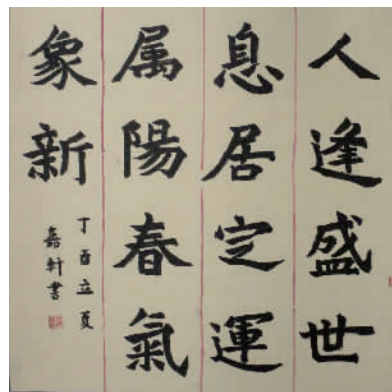 人逢盛世
息居定運
属陽春氣
象新
丁酉立夏
嘉軒書